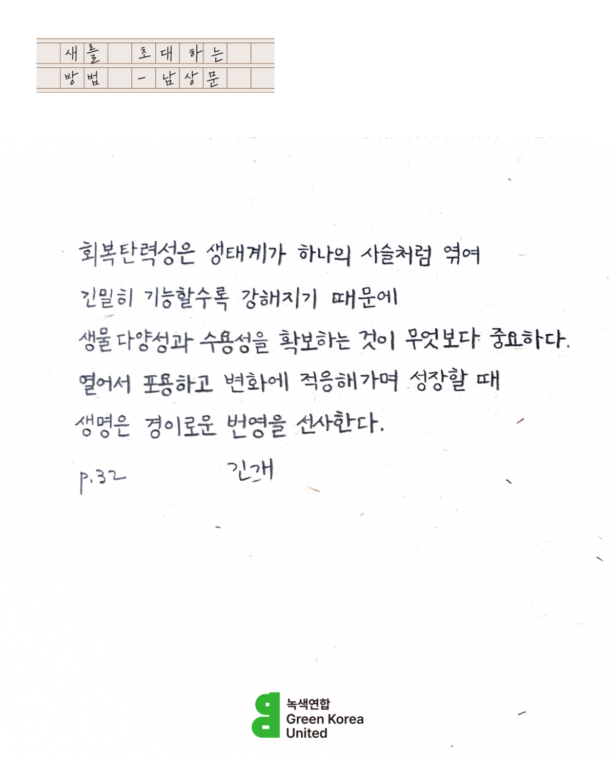 새를 초대하는
방법 - 남상문
회복탄력성은 생태계가 하나의 사슬처럼 엮여
긴밀히 기능할수록 강해지기 때문에
생물다양성과 수용성을 확보하는 것이 무엇보다 중요하다.
열어서 포용하고 변화에 적응해가며 성장할 때
생명은 경이로운 번영을 선사한다.
p.32 긴개
녹색연합
Green Korea
United